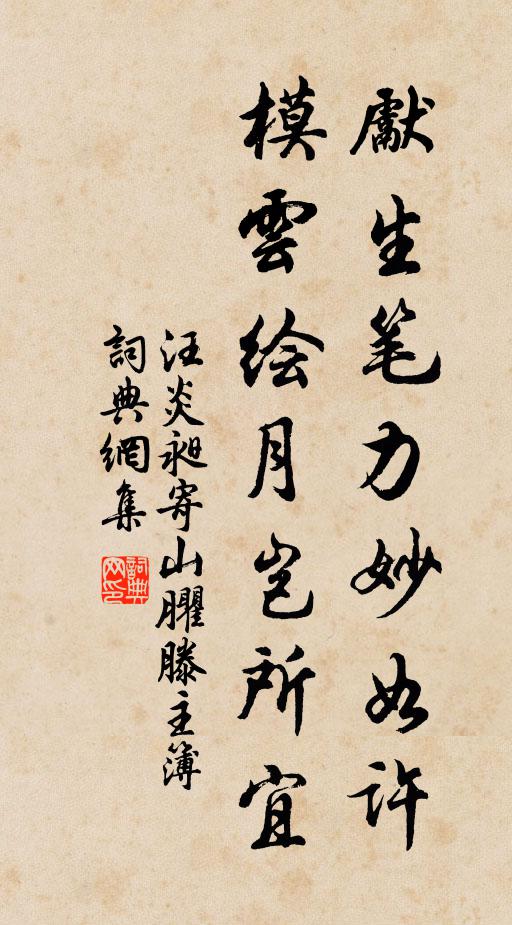 獻生笔力妙如许
模雲绘月岂所宜
汪炎昶寄山臞滕主簿
詞典網集
詞典网印